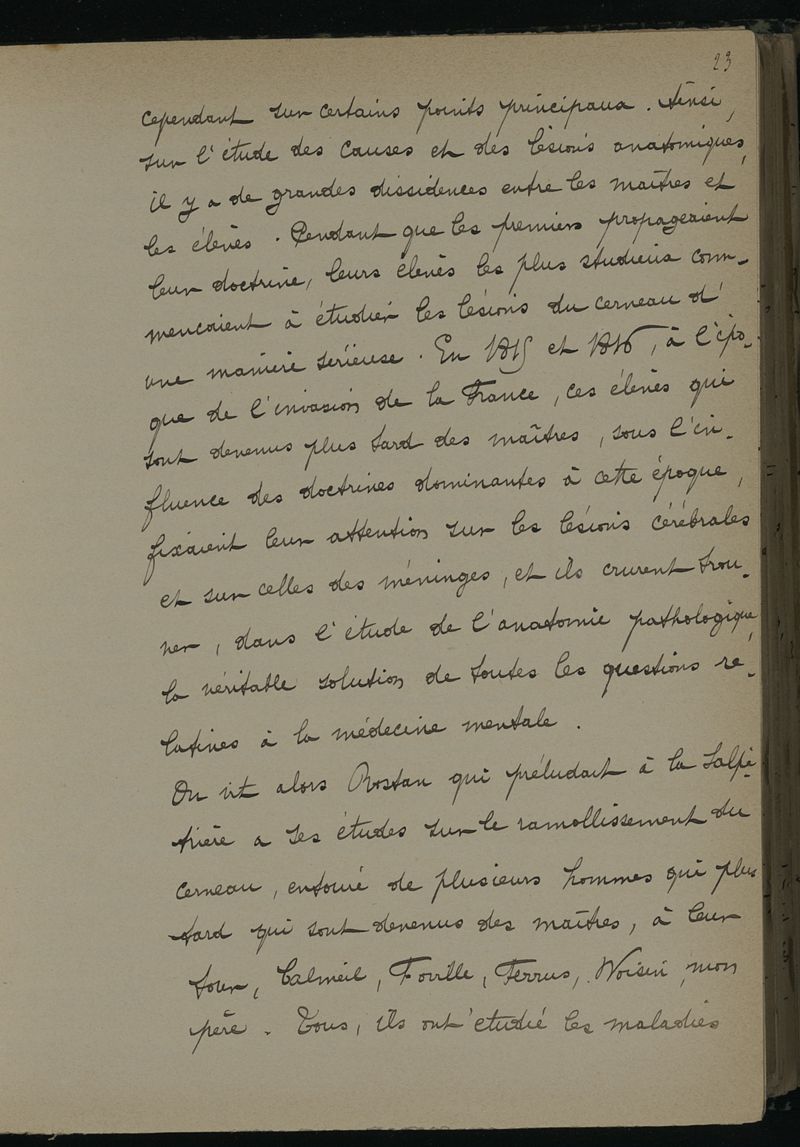 23
cependant sur certains points principaux. Ainsi,
sur l'étude des causes et des lésions anatomiques,
il y a de grandes dissidences entre les maîtres et
les élèves. Pendant que les premiers propageaient
leur doctrine, leurs élèves les plus studieux com-
mencaient à étudier les lésions du cerveau d'
une manière sérieuse. En 1815 et 1816, à l'épo-
que de l'invasion de la France, ces élèves qui
sont devenus plus tard des maîtres, sous l'in-
fluence des doctrines dominantes à cette époque,
fixaient leur attention sur les lésions cérébrales
et sur celles des méninges, et ils crurent trou-
ver, dans l'étude de l'anatomie pathologique,
la véritable solution de toutes les questions re-
latives à la médecine mentale.
On vit alors Rostan qui préludait à la Salpê-
trière a ses études sur le ramollissement du
cerveau, entouré de plusieurs hommes qui plus
tard qui sont devenus des maîtres, à leur
tour, Calmeil, Foville, Ferrus, Woisin, mon
père. Tous, ils ont étudié les maladies